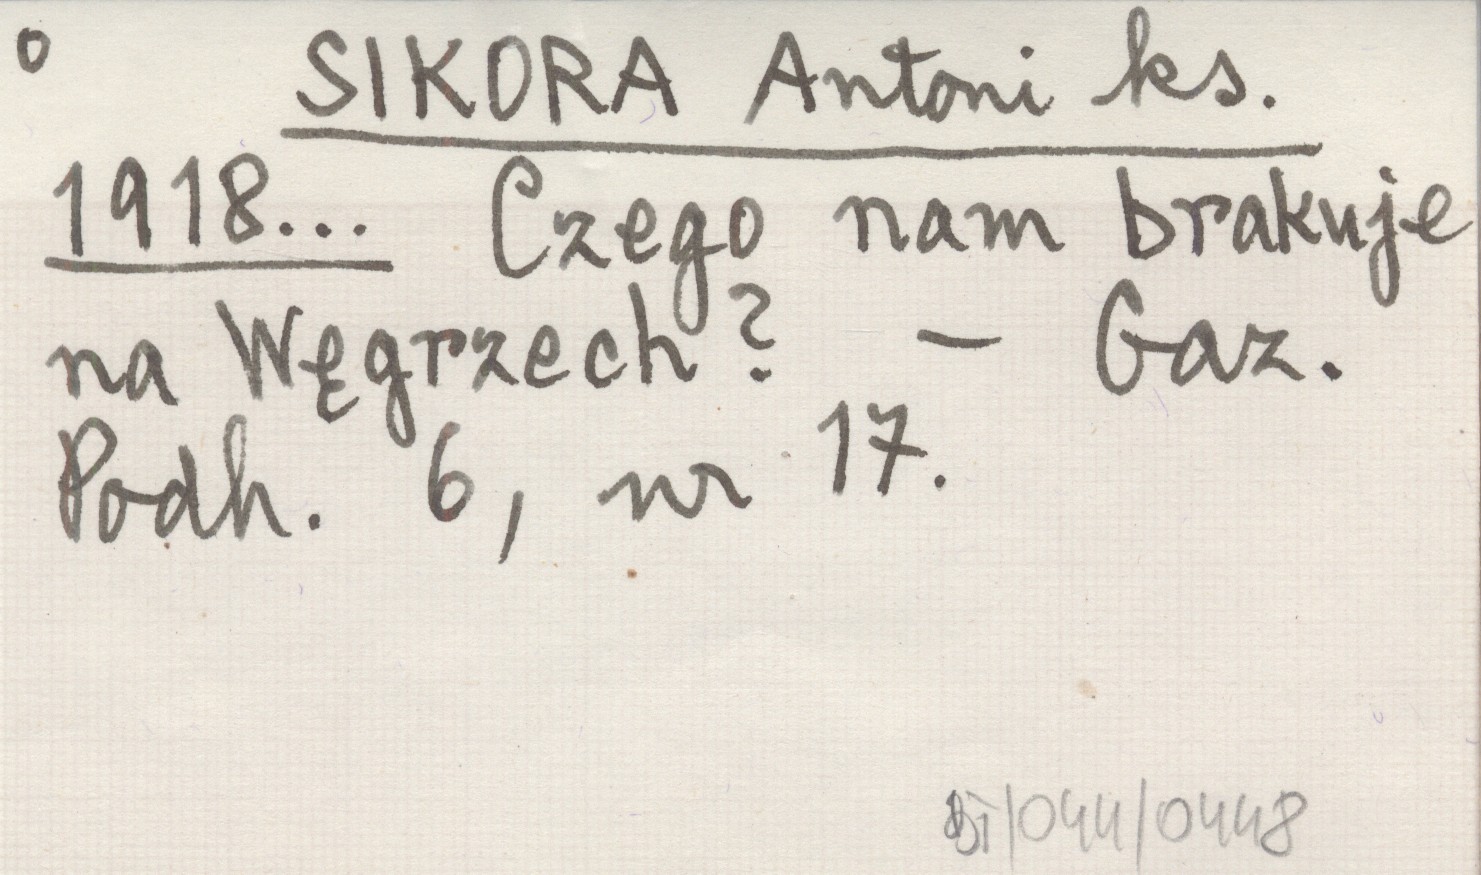 o SIKORA Antoni ks.
1918... Czego nam brakuje
na Węgrzech? – Gaz.
Podh. 6, nr 17.
/044/0448